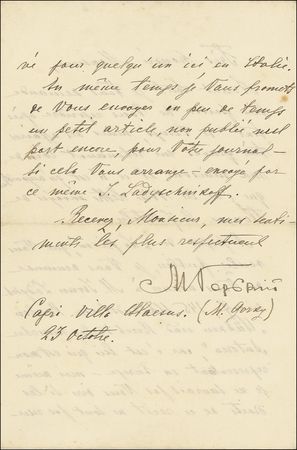 vé pour quelqu'un ici en Italie.
En même temps je Vous promets
de Vous envoyer en peu de temps
un petit article, non publié null
part encore, pour Votre journal –
si cela Vous arrange – envoyé par
ce même J. Ladyschnikoff.
Recevez, Monsieur, mes senti-
ments les plus respectueux
Capri. Villa (M. Gorky)
23 Octobre.